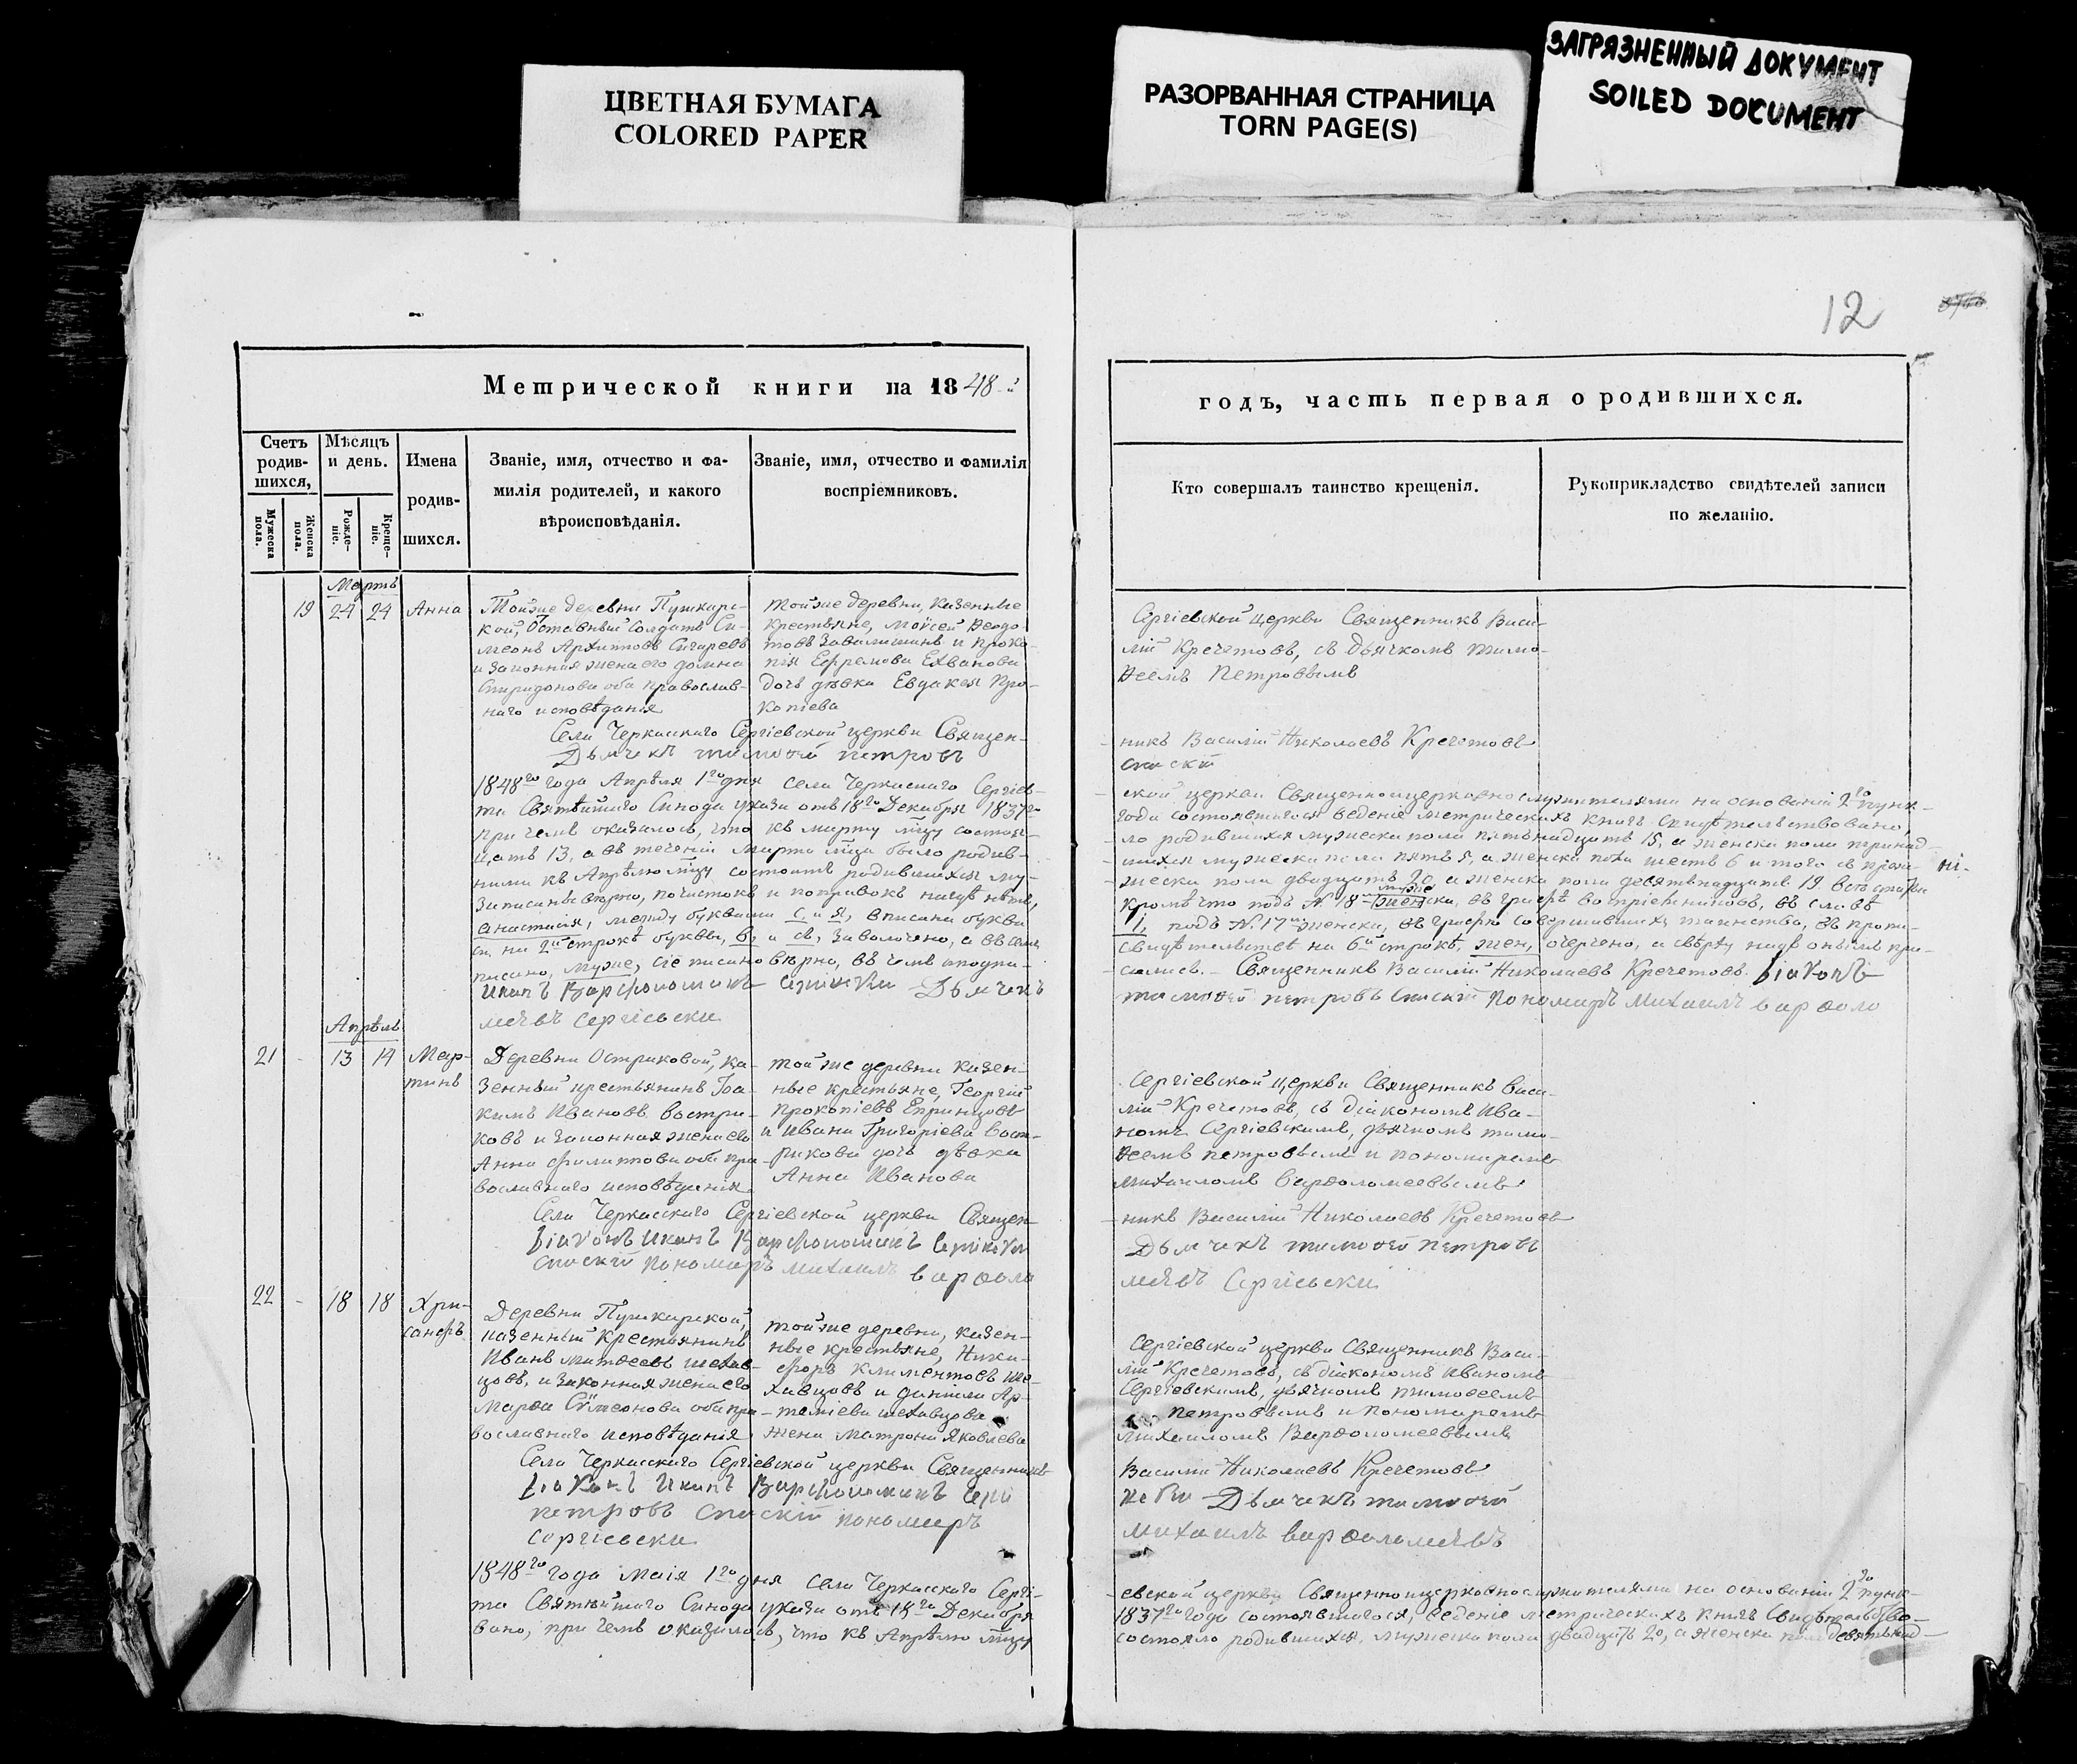 ЦВЕТНАЯ БУМАГА
COLORED PAPER
РАЗОРВАННАЯ СТРАНИЦА
TORN PAGE(S)
ЗАГРЯЗНЕННЫЙ ДОКУМЕНТ
SOILED DOCUMENT
12
Метрической книги на 1848
годъ, часть первая о родившихся.
Счетъ родив-шихся,
Мужеска пола.
Женска пола.
Мѣсяцъ и день.
Рожде-ніе.
Креще-ніе.
Имена
родив-
шихся.
Званіе, имя, отчество и фа-
милія родителей, и какого
вѣроисповѣданія.
Званіе, имя, отчество и фамилія
воспріемниковъ.
Кто совершалъ таинство крещенія.
Рукоприкладство свидѣтелей записи
по желанію.
Мартъ
19 24 24 Анна
Тойже деревни Пушкарс-
кой, Отставный солдатъ Си-
меонъ Архиповъ
и законная жена его Домна
Спиридонова оба православ-
наго исповѣданія
тойже деревни, казенные
крестьяне, Моѵсей Ѳеодо-
товъ Завалишинъ и Проко-
пія Ефремова
дочь дѣвка Евдакея Про-
копіева
Сергіевской церкви Священникъ Васи-
лій Кречетовъ, съ Дьячкомъ Тимо-
ѳеемъ Петровымъ
Села Черкасскаго Сергіевской церкви Священ-
никъ Василій Николаевъ Кречетовъ
Дьячекъ тимоѳей петровъ
спаскій
1848го года Апрѣля 1го дня села Черкаскаго Сергіев-
ской церкви Священноицерковнослужителями на основаніи 2го пунк-
та Святѣйшаго Синода указа отъ 18го Декабря 1837го
года состоявшагося веденіе метрическихъ книгъ свидѣтельствовано,
при чемъ оказалось, что къ марту мцу состоя-
ло родившихся мужеска пола пятьнадцать 15, а женска пола тринад-
цать 13, а въ теченіи марта мца было родив-
шихся мужеска пола пять 5, а женска пола шесть 6 и того съ преж-
ними къ Апрѣлю мцу состоитъ родившихся му-
жеска пола двадцать 20, а женска пола девятьнадцать 19. всѣ статьи
записаны вѣрно, почистокъ и поправокъ нигдѣ нѣтъ,
кромѣ что подъ N. 8 женска, въ графѣ воспріемниковъ, въ словѣ
муже
анастасія, между буквами с и я, вписана буква
і, подъ N. 17 женска, въ графѣ совершившихъ таинство,
на 2й строкѣ буквы, в, и св, заволочено,
свидѣтельствѣ на 6й строкѣ, жен, очерчено, а сверху надъ онымъ при-
писано, муже, сіе писано вѣрно, въ чемъ и подпи-
сались. Священникъ Василій Николаевъ Кречетовъ. Діаконъ
Иоаннъ Варфоломеевъ Дьячекъ
тимоѳей петровъ Спаскій Пономарь Михаилъ варѳоло
меевъ Сергіевски
Апрѣль
21 - 13 14 Мар-
тинъ
Деревни Остриковой, ка-
зенный крестьянинъ Іоа-
кимъ Ивановъ Востри-
ковъ и законная жена его
Анна Филиппова оба пра-
вославнаго исповѣданія
тойже деревни казен-
ные крестьяне, Георгій
Прокопіевъ Епринцовъ
и Ивана Григоріева Вост-
рикова дочь дѣвка
Анна Иванова
Сергіевской церкви Священникъ Васи-
лій Кречетовъ, съ діакономъ Ива-
номъ Сергіевскимъ, дьячкомъ Тимо-
ѳеемъ Петровымъ и пономаремъ
Михаиломъ Варѳоломеевымъ
Села Черкасскаго Сергіевской церкви Священ-
никъ Василій Николаевъ Кречетовъ
Діаконъ Иоаннъ Варфоломеевъ
Дьячекъ тимоѳей петровъ
Спаскій Пономарь михаилъ варѳоло
меевъ Сергіевски
22 - 18 18 Хри-
санѳъ
Деревни Пушкарской,
казенный крестьянинъ
Иванъ Матѳеевъ Шехав-
цовъ, и законная жена его
Марѳа Сѵмеонова оба пра-
вославнаго исповѣданія
тойже деревни, казен-
ные крестьяне, Ники-
форъ Климентовъ Ше-
хавцовъ и Даніила Ар-
темьева Шехавцова
жена Матрона Яковлева
Сергіевской церкви Священникъ Васи-
лій Кречетовъ, съ діакономъ Иваномъ
Сергіевскимъ, дьячкомъ Тимоѳеемъ
Петровымъ и пономаремъ
Михаиломъ Варѳоломеевымъ
Села Черкасскаго Сергіевской церкви Священникъ
Василій Николаевъ Кречетовъ
Діаконъ Иоаннъ Варфоломеевъ
Дьячекъ тимоѳей
петровъ Спаскій пономарь
михаилъ варѳоломеевъ
Сергіевски
1848го года Маія 1го дня Села Черкасскаго Сергі-
евской церкви Священноицерковнослужителями на основаніи 2го пунк-
та Святѣйшаго Синода указа отъ 18го Декабря
1837го года состоявшагося, веденіе метрическихъ книгъ свидѣтельство-
вано, при чемъ оказалось, что къ Апрѣлю мцу
состояло родившихся, мужеска пола двадцать 20, а женска пола девятьнад-